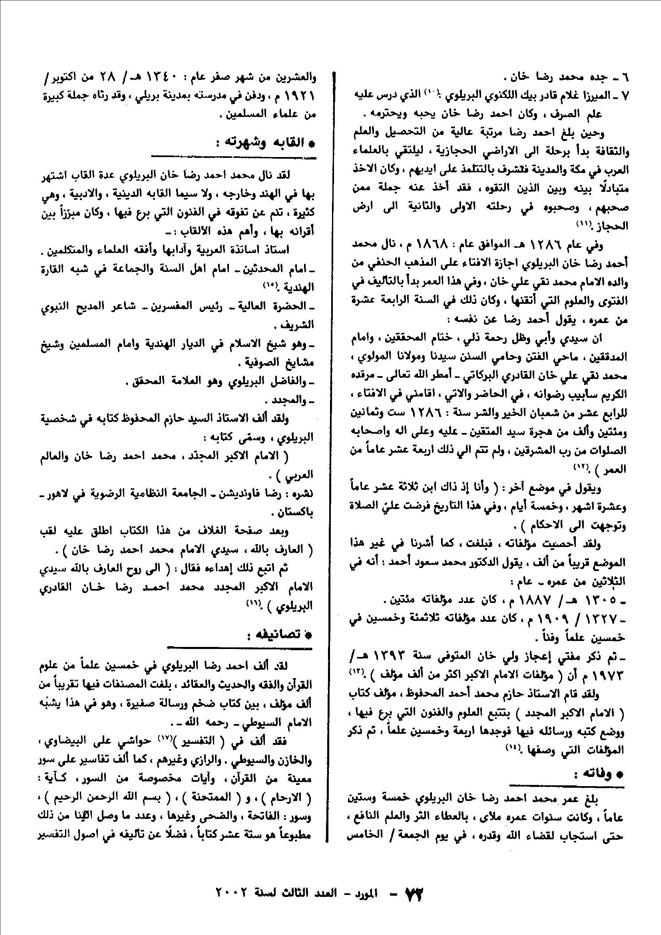 ٦ ـ جده محمد رضا خان .
٧ ـ الميرزا غلام قادر بيك اللكنوي البريلوي .(١٠) الذي درس عليه
علم الصرف ، وكان احمد رضا خان يحبه ويحترمه .
وحين بلغ احمد رضا مرتبة عالية من التحصيل والعلم
والثقافة بدأ برحلة الى الاراضي الحجازية ، ليلتقي بالعلماء
العرب في مكة والمدينة فتشرف بالتتلمذ على ايديهم ، وكان الاخذ
متبادلًا بينه وبين الذين التقوه ، فقد أخذ عنه جملة ممن
صحبهم ، وصحبوه في رحلته الاولى والثانية الى ارض
الحجاز .(١١)
وفي عام ١٢٨٦ هـ الموافق عام : ١٨٦٨ م ، نال محمد
أحمد رضا خان البريلوي اجازة الافتاء على المذهب الحنفي من
والده الامام محمد نقي علي خان ، وفي هذا العمر بدأ بالتأليف في
الفتوى والعلوم التي أتقنها ، وكان ذلك في السنة الرابعة عشرة
من عمره ، يقول أحمد رضا عن نفسه :
ان سيدي وأبي وظل رحمة ذلي ، ختام المحققين ، وامام
المدققين ، ماحي الفتن وحامي السنن سيدنا ومولانا المولوي ،
محمد نقي علي خان القادري البركاتي ـ أمطر الله تعالى ـ مرقده
الكريم سآبيب رضوانه ، في الحاضر والاتي ، اقامني في الافتاء ،
للرابع عشر من شعبان الخير والشر سنة : ١٢٨٦ ست وثمانين
ومئتين وألف من هجرة سيد المتقين ـ عليه وعلى اله واصحابه
الصلوات من رب المشرقين ، ولم تتم الي ذلك اربعة عشر عاماً من
العمر ) .(١٢)
ويقول في موضع آخر : ( وأنا إذ ذاك ابن ثلاثة عشر عاماً
وعشرة اشهر ، وخمسة أيام ، وفي هذا التاريخ فرضت عليّ الصلاة
وتوجهت الى الاحكام ) .
ولقد أحصيت مؤلفاته ، فبلغت ، كما أشرنا في غير هذا
الموضع قريباً من ألف ، يقول الدكتور محمد سعود أحمد : أنه في
الثلاثين من عمره ـ عام :
ـ ١٣٠٥ هـ / ١٨٨٧ م ، كان عدد مؤلفاته مئتين .
ـ ١٣٢٧ / ١٩٠٩ م ، كان عدد مؤلفاته ثلاثمئة وخمسين في
خمسين علماً وفناً .
ـ ثم ذكر مفتي إعجاز ولي خان المتوفى سنة ١٣٩٣ هـ /
١٩٧٣ م أن ( مؤلفات الامام الاكبر اكثر من ألف مؤلف ) .(١٣)
ولقد قام الاستاذ حازم محمد أحمد المحفوظ ، مؤلف كتاب
( الامام الاكبر المجدد ) بتتبع العلوم والفنون التي برع فيها ،
ووضع كتبه ورسائله فيها فوجدها اربعة وخمسين علماً ، ثم ذكر
المؤلفات التي وصفها .(١٤)
* وفاته :
بلغ عمر محمد احمد رضا خان البريلوي خمسة وستين
عاماً ، وكانت سنوات عمره ملأى ، بالعطاء الثر والعلم النافع ،
حتى استجاب لقضاء الله وقدره ، في يوم الجمعة / الخامس
والعشرين من شهر صفر عام : ١٣٤٠ هـ / ٢٨ من اكتوبر /
١٩٢١ م ، ودفن في مدرسته بمدينة بريلي ، وقد رثاه جملة كبيرة
من علماء المسلمين .
* القابه وشهرته :
لقد نال محمد احمد رضا خان البريلوي عدة القاب اشتهر
بها في الهند وخارجه ، ولا سيما القابه الدينية ، والادبية ، وهي
كثيرة ، تنم عن تفوقه في الفنون التي برع فيها ، وكان مبرّزاً بين
أقرانه بها ، وأهم هذه الألقاب : ـ
استاذ اساتذة العربية وآدابها وأفقه العلماء والمتكلمين .
ـ امام المحدثين ـ امام اهل السنة والجماعة في شبه القارة
الهندية .(١٥)
ـ الحضرة العالية ـ رئيس المفسرين ـ شاعر المديح النبوي
الشريف .
ـ وهو شيخ الاسلام في الديار الهندية وامام المسلمين وشيخ
مشايخ الصوفية .
ـ والفاضل البريلوي وهو العلامة المحقق .
ـ والمجدد .
ولقد ألف الاستاذ السيد حازم المحفوظ كتابه في شخصية
البريلوي ، وسمّى كتابه :
( الامام الاكبر المجدّد ، محمد احمد رضا خان والعالم
العربي ) .
نشره : رضا فاونديشن ـ الجامعة النظامية الرضوية في لاهور ـ
باكستان .
وبعد صفحة الغلاف من هذا الكتاب اطلق عليه لقب
( العارف بالله ، سيدي الامام محمد احمد رضا خان ) .
ثم اتبع ذلك إهداءه فقال : ( الى روح العارف بالله سيدي
الامام الاكبر المجدد محمد احمد رضا خان القادري
البريلوي ) .(١٦)
* تصانيفه :
لقد ألف احمد رضا البريلوي في خمسين علماً من علوم
القرآن والفقه والحديث والعقائد ، بلغت المصنفات فيها تقريباً من
ألف مؤلف ، بين كتاب ضخم ورسالة صغيرة ، وهو في هذا يشبه
الامام السيوطي ـ رحمه الله ـ .
فقد ألف في ( التفسير )(١٧) حواشي على البيضاوي ،
والخازن والسيوطي . والرازي وغيرهم ، كما ألف تفاسير على سور
معينة من القرآن ، وآيات مخصوصة من السور ، كـآية :
( الارحام ) ، و ( الممتحنة ) ، ( بسم الله الرحمن الرحيم ) ،
وسور : الفاتحة ، والضحى وغيرها ، وعدد ما وصل الينا من ذلك
مطبوعاً هو ستة عشر كتاباً ، فضلًا عن تآليفه في اصول التفسير
٧٢ ـ المورد ـ العدد الثالث لسنة ٢٠٠٢